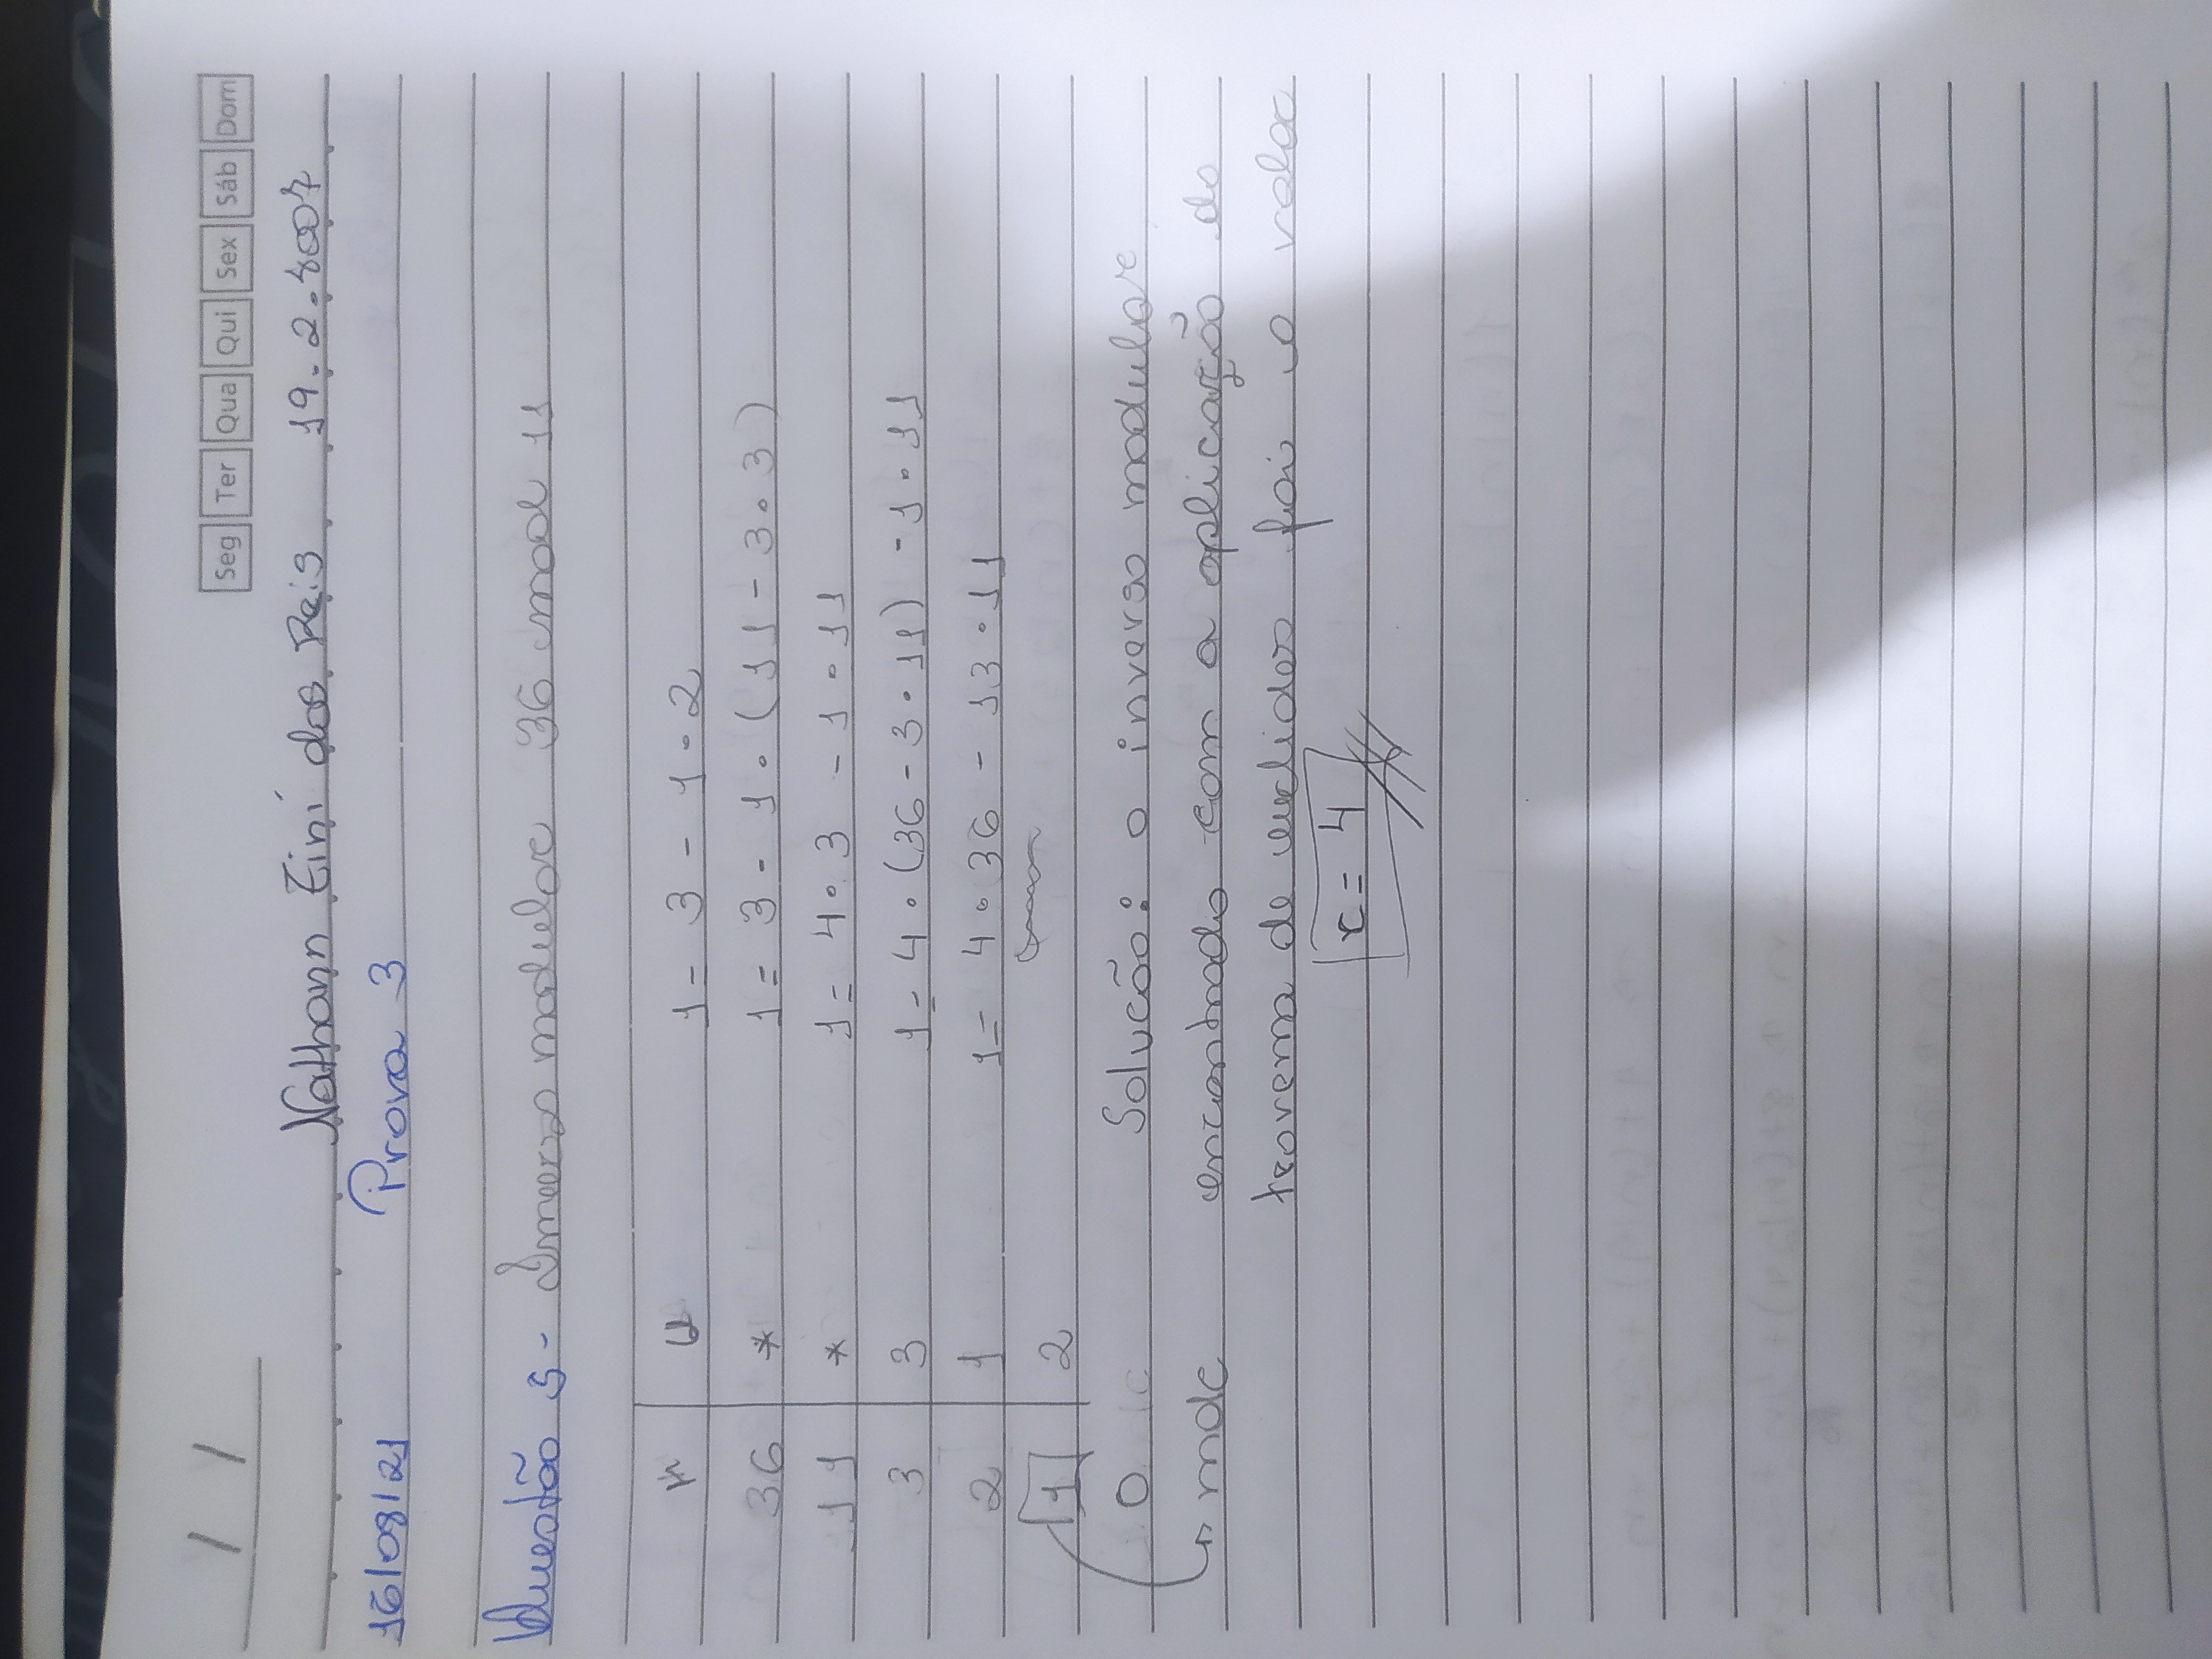 / /
Seg Ter Qua Qui Sex Sáb Dom
Nathann Zini dos Reis 19.2.4007
16/08/21 Prova 3
Questão 5- Inverso modular 36 mod 11
1= 3 - 1 • 2
36 * 1= 3 - 1 • (11 - 3 • 3)
11 * 1= 4 • 3 - 1 • 11
3 3 1= 4 • (36 - 3 • 11) - 1 • 11
2 1 1= 4 • 36 - 13 • 11
1 2
0 Solucão: o inverso modular
↳ mdc encontrado com a aplicação do
teorema de euclides foi o valor
x= 4